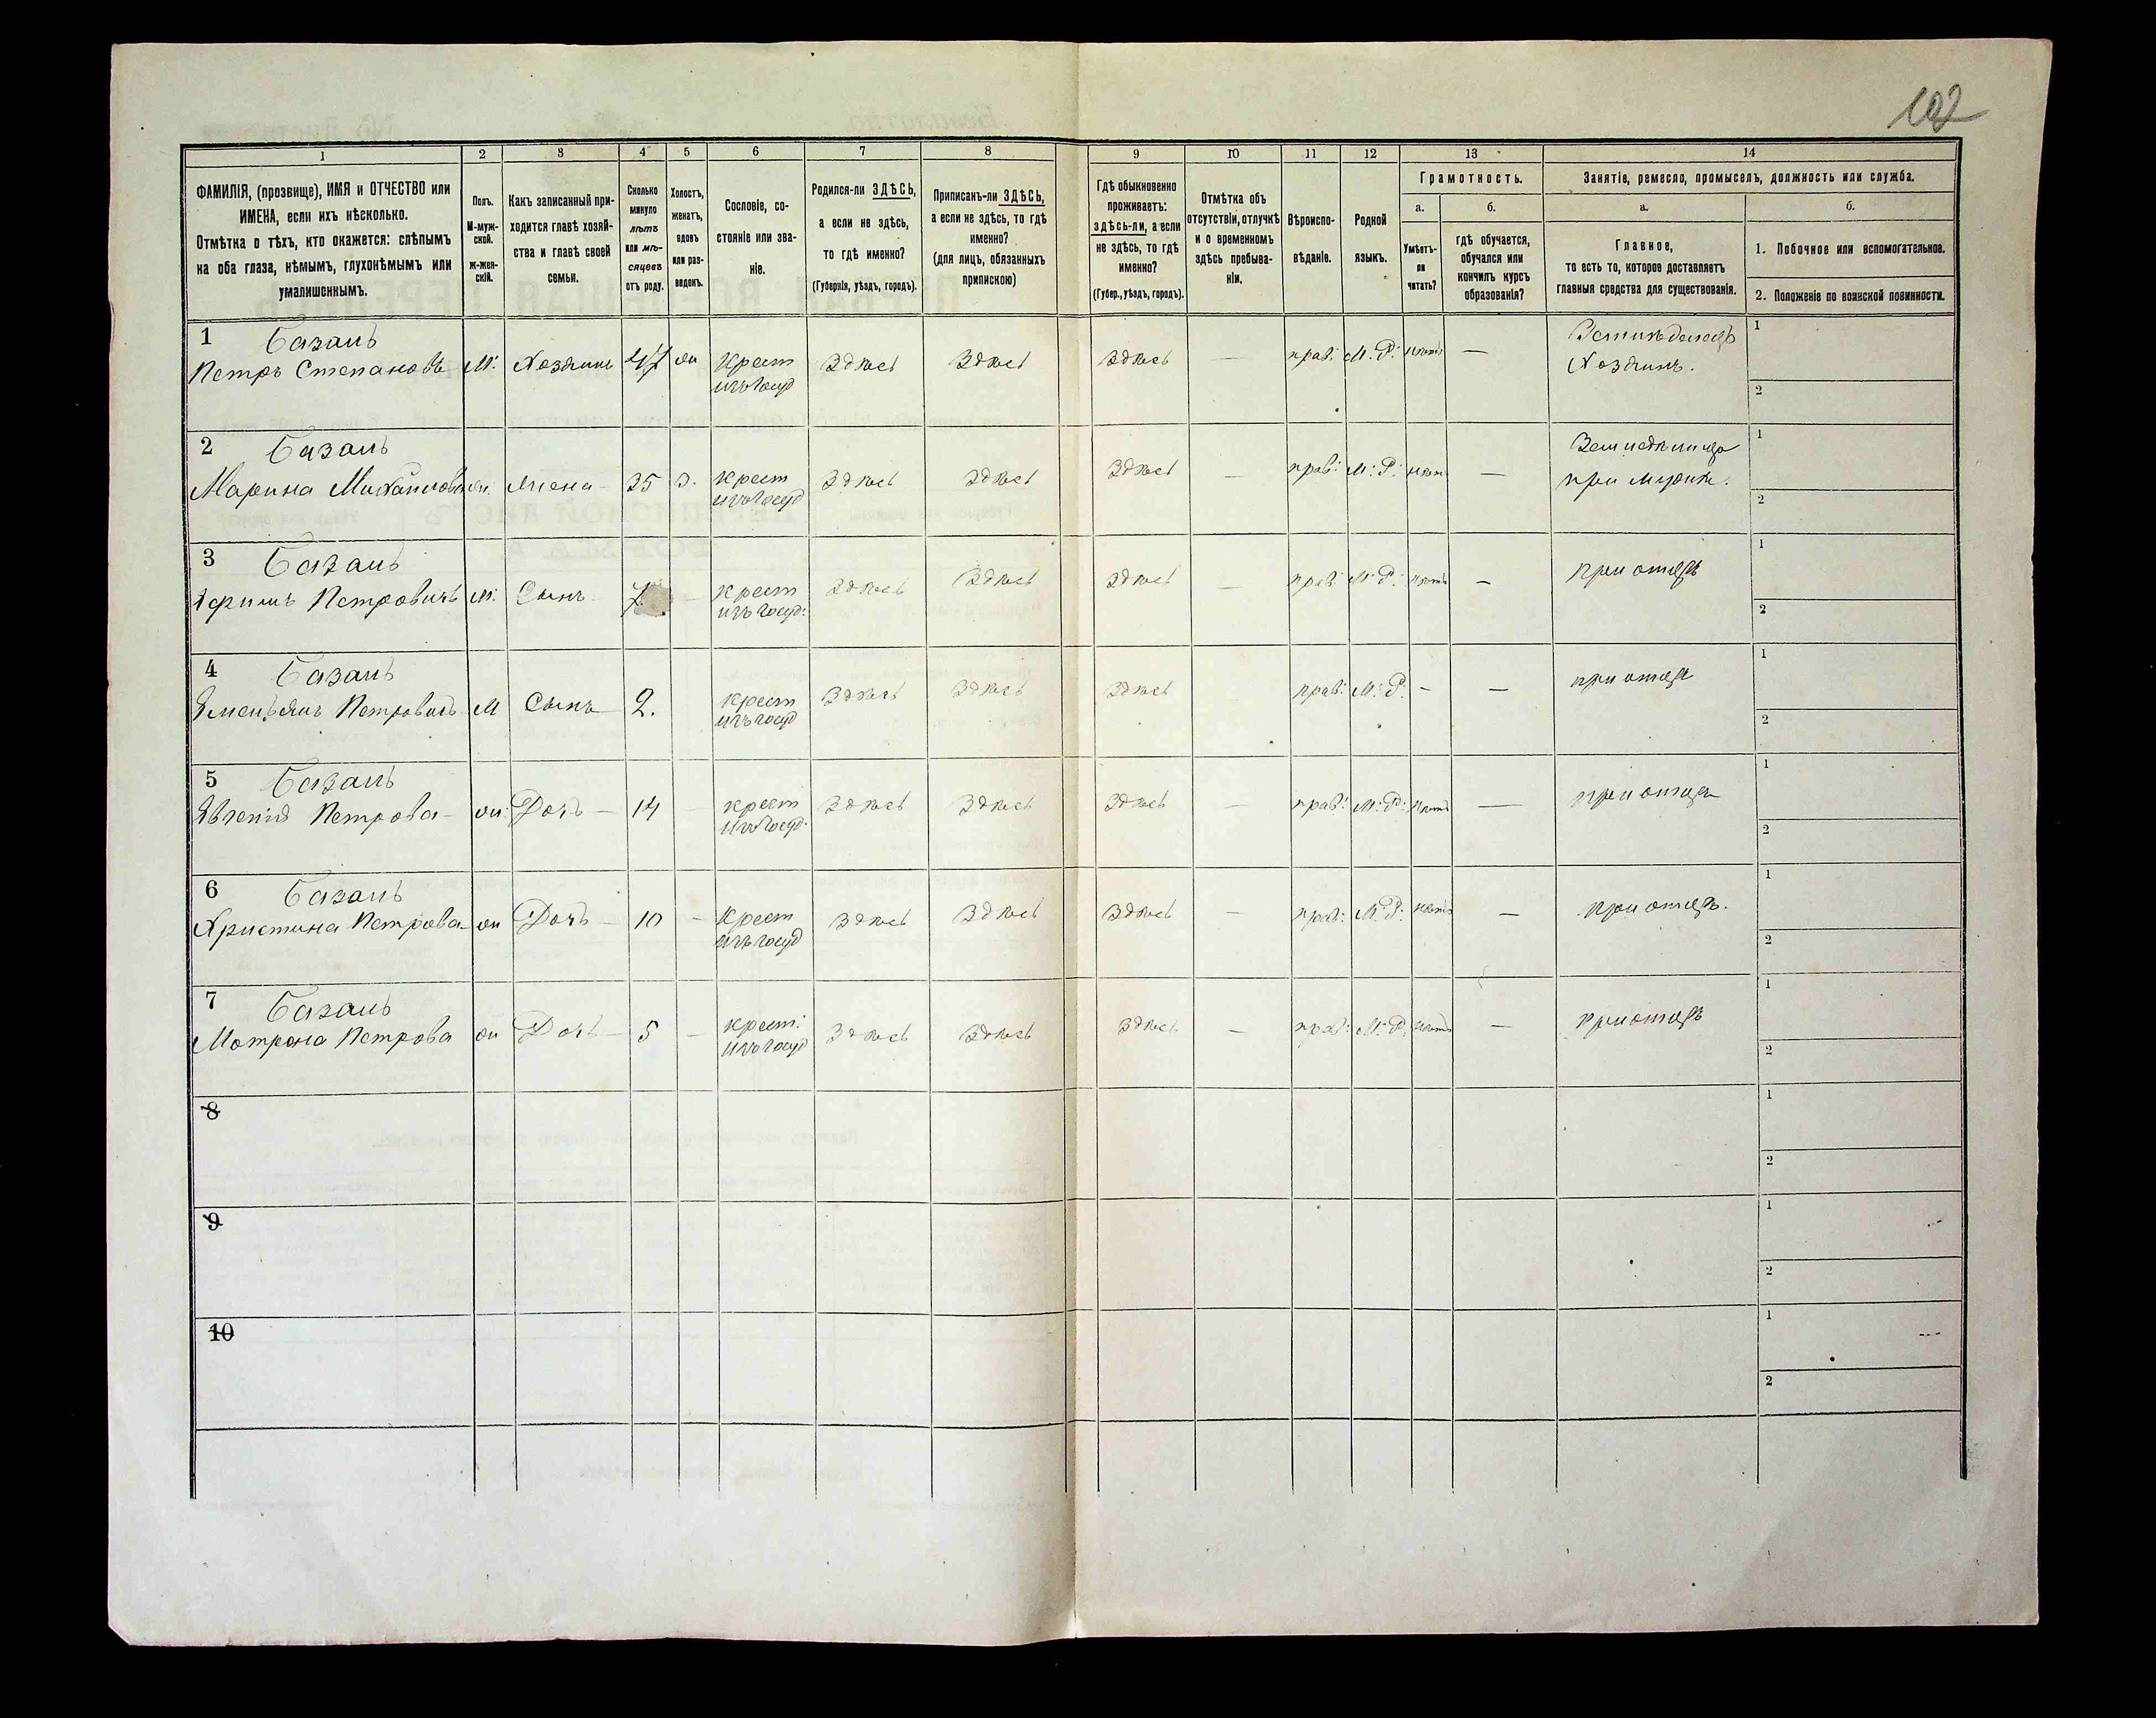 102
1 2 3 4 5 6 7 8 9 10 11 12 13 14
ФАМИЛІЯ, (прозвище), ИМЯ и ОТЧЕСТВО или
ИМЕНА, если ихъ нѣсколько.
Отмѣтка о тѣхъ, кто окажется: слѣпымъ
на оба глаза, нѣмымъ, глухонѣмымъ или
умалишеннымъ.
Полъ.
М-муж-
ской.
Ж-жен-
скій.
Какъ записанный при-
ходится главѣ хозяй-
ства и главѣ своей
семьи.
Сколько
минуло
лѣтъ
или мѣ-
сяцевъ
отъ роду.
Холостъ,
женатъ,
вдовъ
или раз-
веденъ.
Сословіе, со-
стояніе или зва-
ніе.
Родился-ли ЗДѢСЬ,
а если не здѣсь,
то гдѣ именно?
(Губернія, уѣздъ, городъ).
Приписанъ-ли ЗДѢСЬ,
а если не здѣсь, то гдѣ
именно?
(для лицъ, обязанныхъ
припискою)
Гдѣ обыкновенно
проживаетъ:
здѣсь-ли, а если
не здѣсь, то гдѣ
именно?
(Губер., уѣздъ, городъ).
Отмѣтка объ
отсутствіи, отлучкѣ
и о временномъ
здѣсь пребыва-
ніи.
Вѣроиспо-
вѣданіе.
Родной
языкъ.
Грамотность.
а.
Умѣетъ-
ли
читать?
б.
гдѣ обучается,
обучался или
кончилъ курсъ
образованія?
Занятіе, ремесло, промыселъ, должность или служба.
а.
Главное,
то есть то, которое доставляетъ
главныя средства для существованія.
б.
1. Побочное или вспомогательное.
2. Положеніе по воинской повинности.
1 Базань 1
Петръ Степановъ М. Хозяинъ 47 ж Крест Здѣсь Здѣсь Здѣсь — прав: М. Р. нѣтъ — Хозяинъ.
изъ госуд 2
2 Базань Земледѣлица 1
Марина Михайлова ж. Жена 35 З. Крест Здѣсь Здѣсь Здѣсь — прав: М. Р. нѣтъ — при мужѣ.
изъ госуд 2
3 Базань 1
Петровичъ М. Сынъ 7 — Крест Здѣсь Здѣсь Здѣсь — прав: М. Р. нѣтъ — при отцѣ
изъ госуд: 2
4 Базань 1
Петровичъ М Сынъ 2. Крест Здѣсь Здѣсь Здѣсь прав: М. Р. — — при отцѣ
изъ госуд 2
5 Базань 1
Петрова ж. Дочь 14 — Крест Здѣсь Здѣсь Здѣсь — прав: М. Р. нѣтъ — при отцѣ
изъ госуд. 2
6 Базань 1
Христина Петрова ж Дочь 10 — Крест Здѣсь Здѣсь Здѣсь — прав: М. Р. нѣтъ — при отцѣ.
изъ госуд 2
7 Базань 1
Мотрона Петрова ж Дочь 5 — Крест: Здѣсь Здѣсь Здѣсь — прав: М. Р. нѣтъ — при отцѣ
изъ госуд 2
8 1
2
9 1
2
10 1
2